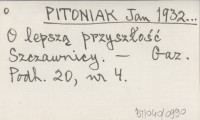 PITONIAK Jan 1932...
O lepszą przyszłość
Szczawnicy. — Gaz.
Podh. 20, nr 4.